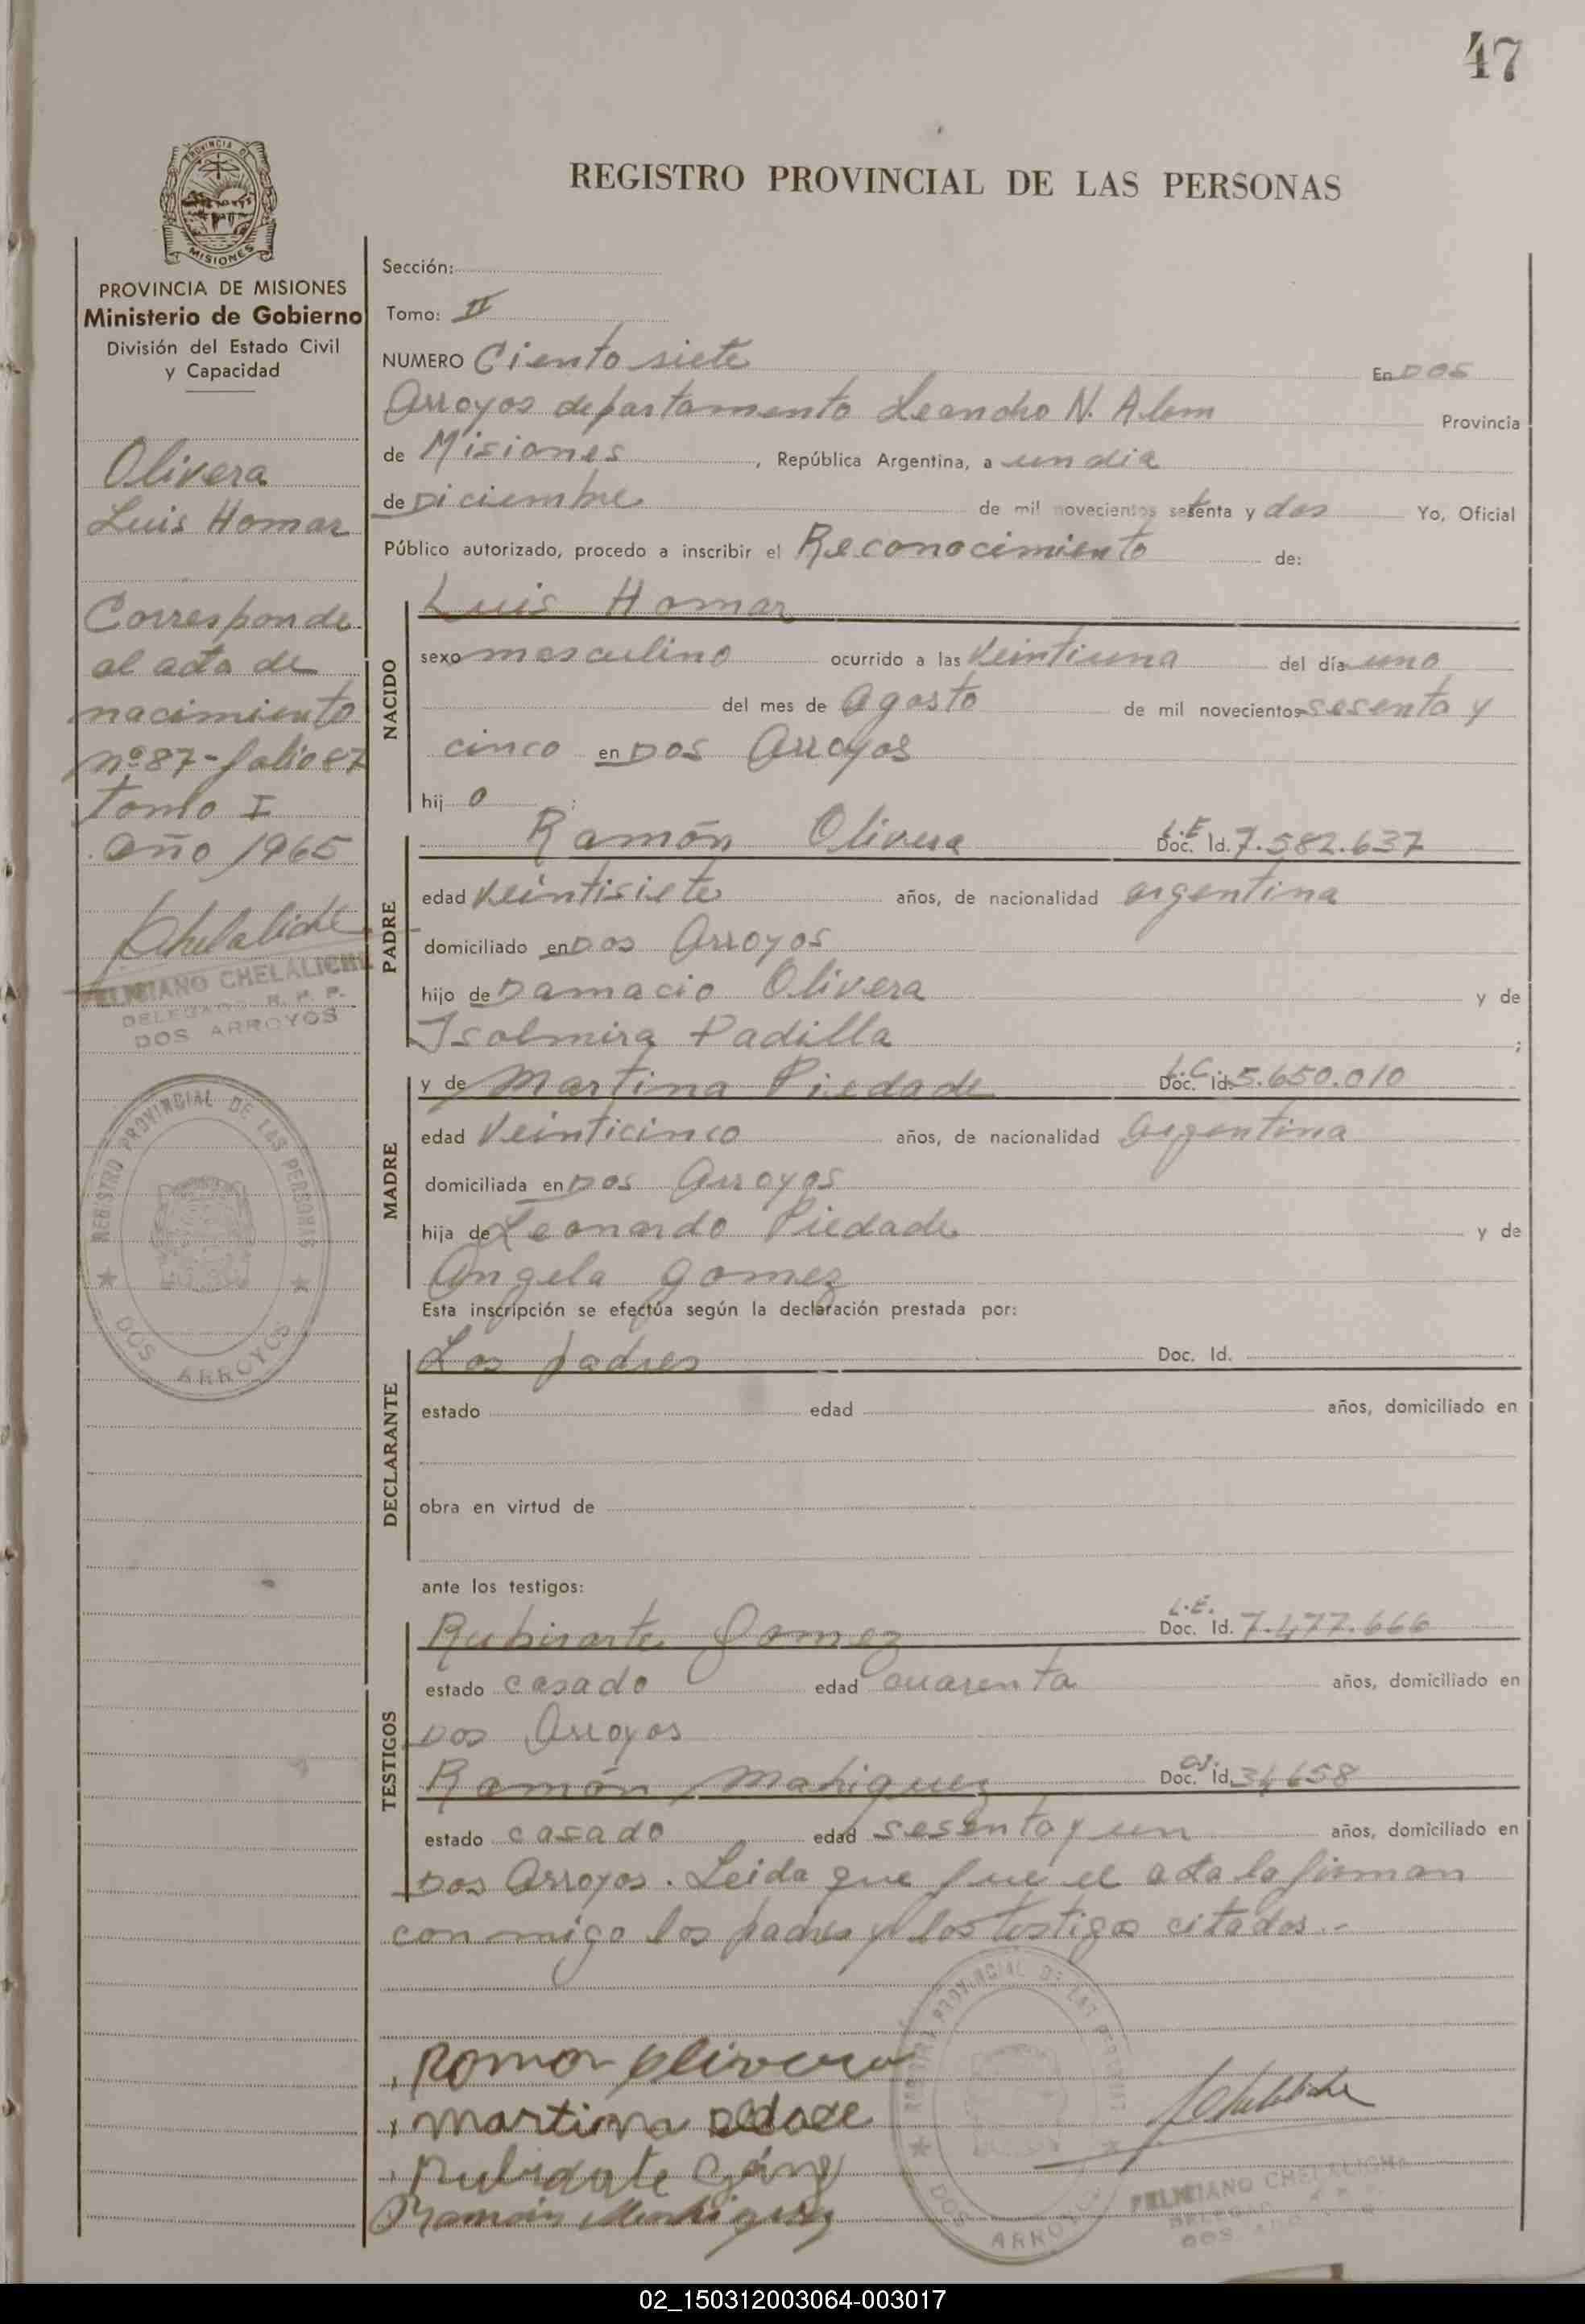 47
PROVINCIA DE
MISIONES
REGISTRO PROVINCIAL DE LAS PERSONAS
PROVINCIA DE MISIONES
Ministerio de Gobierno
División del Estado Civil
y Capacidad
Olivera
Luis Homar
Corresponde
al acta de
nacimiento
nº 87-folio 87
Tomo I
año 1965
FELICIANO CHELALICHE
DELEGADO R. P. P.
DOS ARROYOS
REGISTRO PROVINCIAL DE LAS PERSONAS
DOS ARROYOS
Sección:
Tomo: II
NUMERO Ciento siete En Dos
Arroyos departamento Leandro N. Alem Provincia
de Misiones, República Argentina, a un dia
de Diciembre de mil novecientos setenta y dos Yo, Oficial
Público autorizado, procedo a inscribir el Reconocimiento de:
NACIDO
Luis Homar
sexo masculino ocurrido a las veintiuna del día uno
del mes de Agosto de mil novecientos sesenta y
cinco en Dos Arroyos
hij o :
PADRE
Ramón Olivera L.E Doc. Id. 7.582.637
edad veintisiete años, de nacionalidad argentina
domiciliado en Dos Arroyos
hijo de Damacio Olivera y de
Isolmira Padilla ;
MADRE
y de Martina Piedade L.C. Doc. Id. 5.650.010
edad veinticinco años, de nacionalidad argentina
domiciliada en Dos Arroyos
hija de Leonardo Piedade y de
Angela Gomez
Esta inscripción se efectúa según la declaración prestada por:
DECLARANTE
Los padres Doc. Id.
estado edad años, domiciliado en
obra en virtud de
ante los testigos:
TESTIGOS
Gomez L.E. Doc. Id. 7.477.666
estado casado edad cuarenta años, domiciliado en
Dos Arroyos
Ramón C.I. Doc. Id. 34658
estado casado edad sesenta y un años, domiciliado en
Dos Arroyos. Leida que fue el acta la firman
conmigo los padres y los testigos citados.-
Ramon Olivera
Martina
Ramón
REGISTRO PROVINCIAL DE LAS PERSONAS
DOS ARROYOS
FELICIANO CHELALICHE
DELEGADO R. P. P.
DOS ARROYOS
02_150312003064-003017